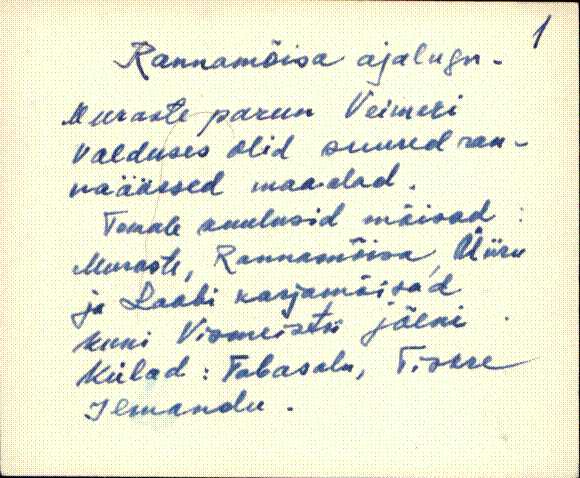 1
Rannamõisa ajalugu.
Muraste parun Veimeri
valduses olid suured ran-
naäärsed maadad.
Temale kuulusid mõisad:
Muraste, Rannamõisa, Üüru
ja Laabi karjamõisad
kuni Vismeistri jõeni.
Külad: Tabasalu, Tiskre
Ilmandu.